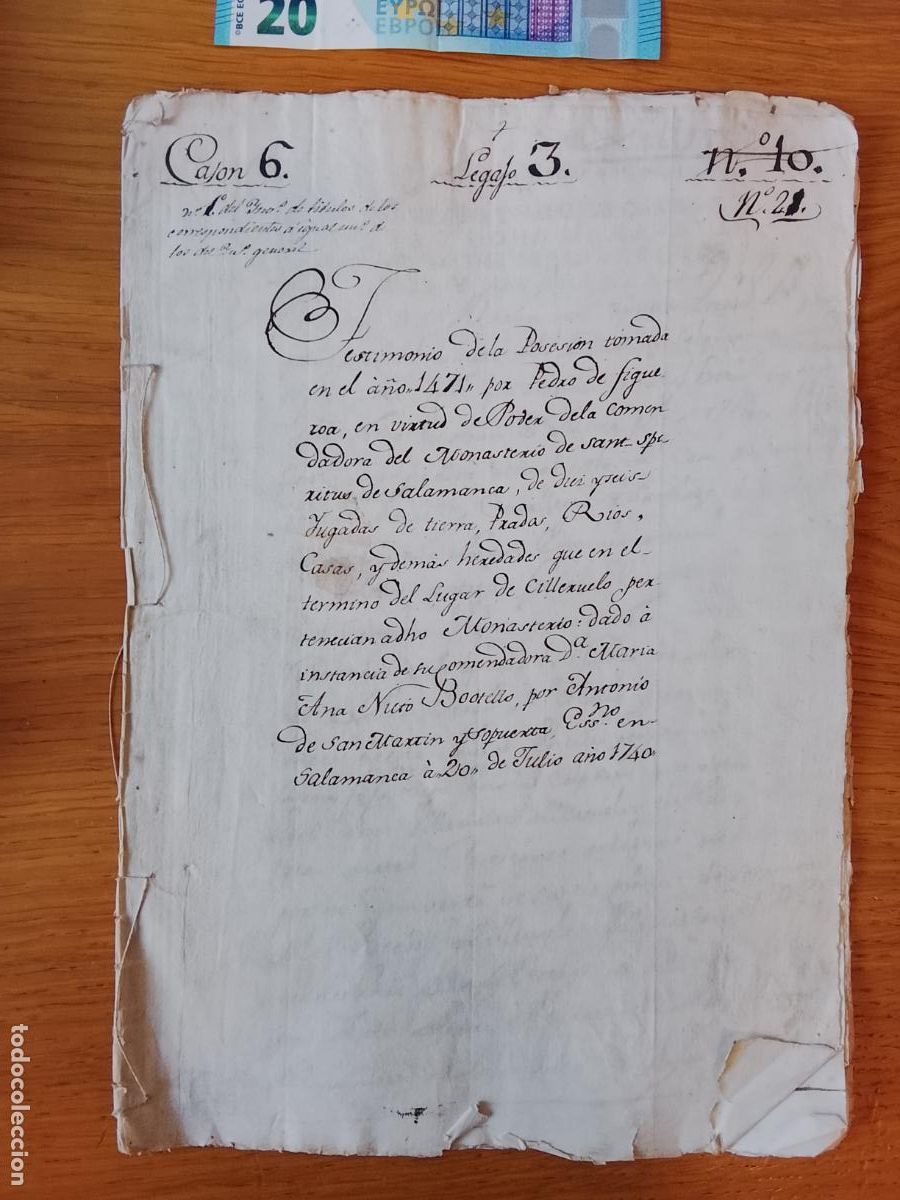 ©BCE EC
20
ΕΥΡΩ
ЕВРО
Caxon 6.
Legaxo 3.
n.º 10.
Nº. 21.
nº 1º del de titulos de los
correspondientes a igual nuº de
los dos general
Testimonio de la Posesion tomada
en el año 1471 por Pedro de Figue
roa, en virtud de Poder de la Comen
dadora del Monasterio de Sant Spi
ritus de Salamanca, de diez y seis
Jugadas de tierra, Prados, Rios,
Casas, y demás heredades que en el
termino del Lugar de Cilleruelo per
tenecian adho Monasterio: dado à
instancia de su Comendadora Dª. Maria
Ana Nieto Bootello, por Antonio
de San Martin y Sopuerta, Essno. en
Salamanca à 20 de Julio año 1740
todocoleccion.net